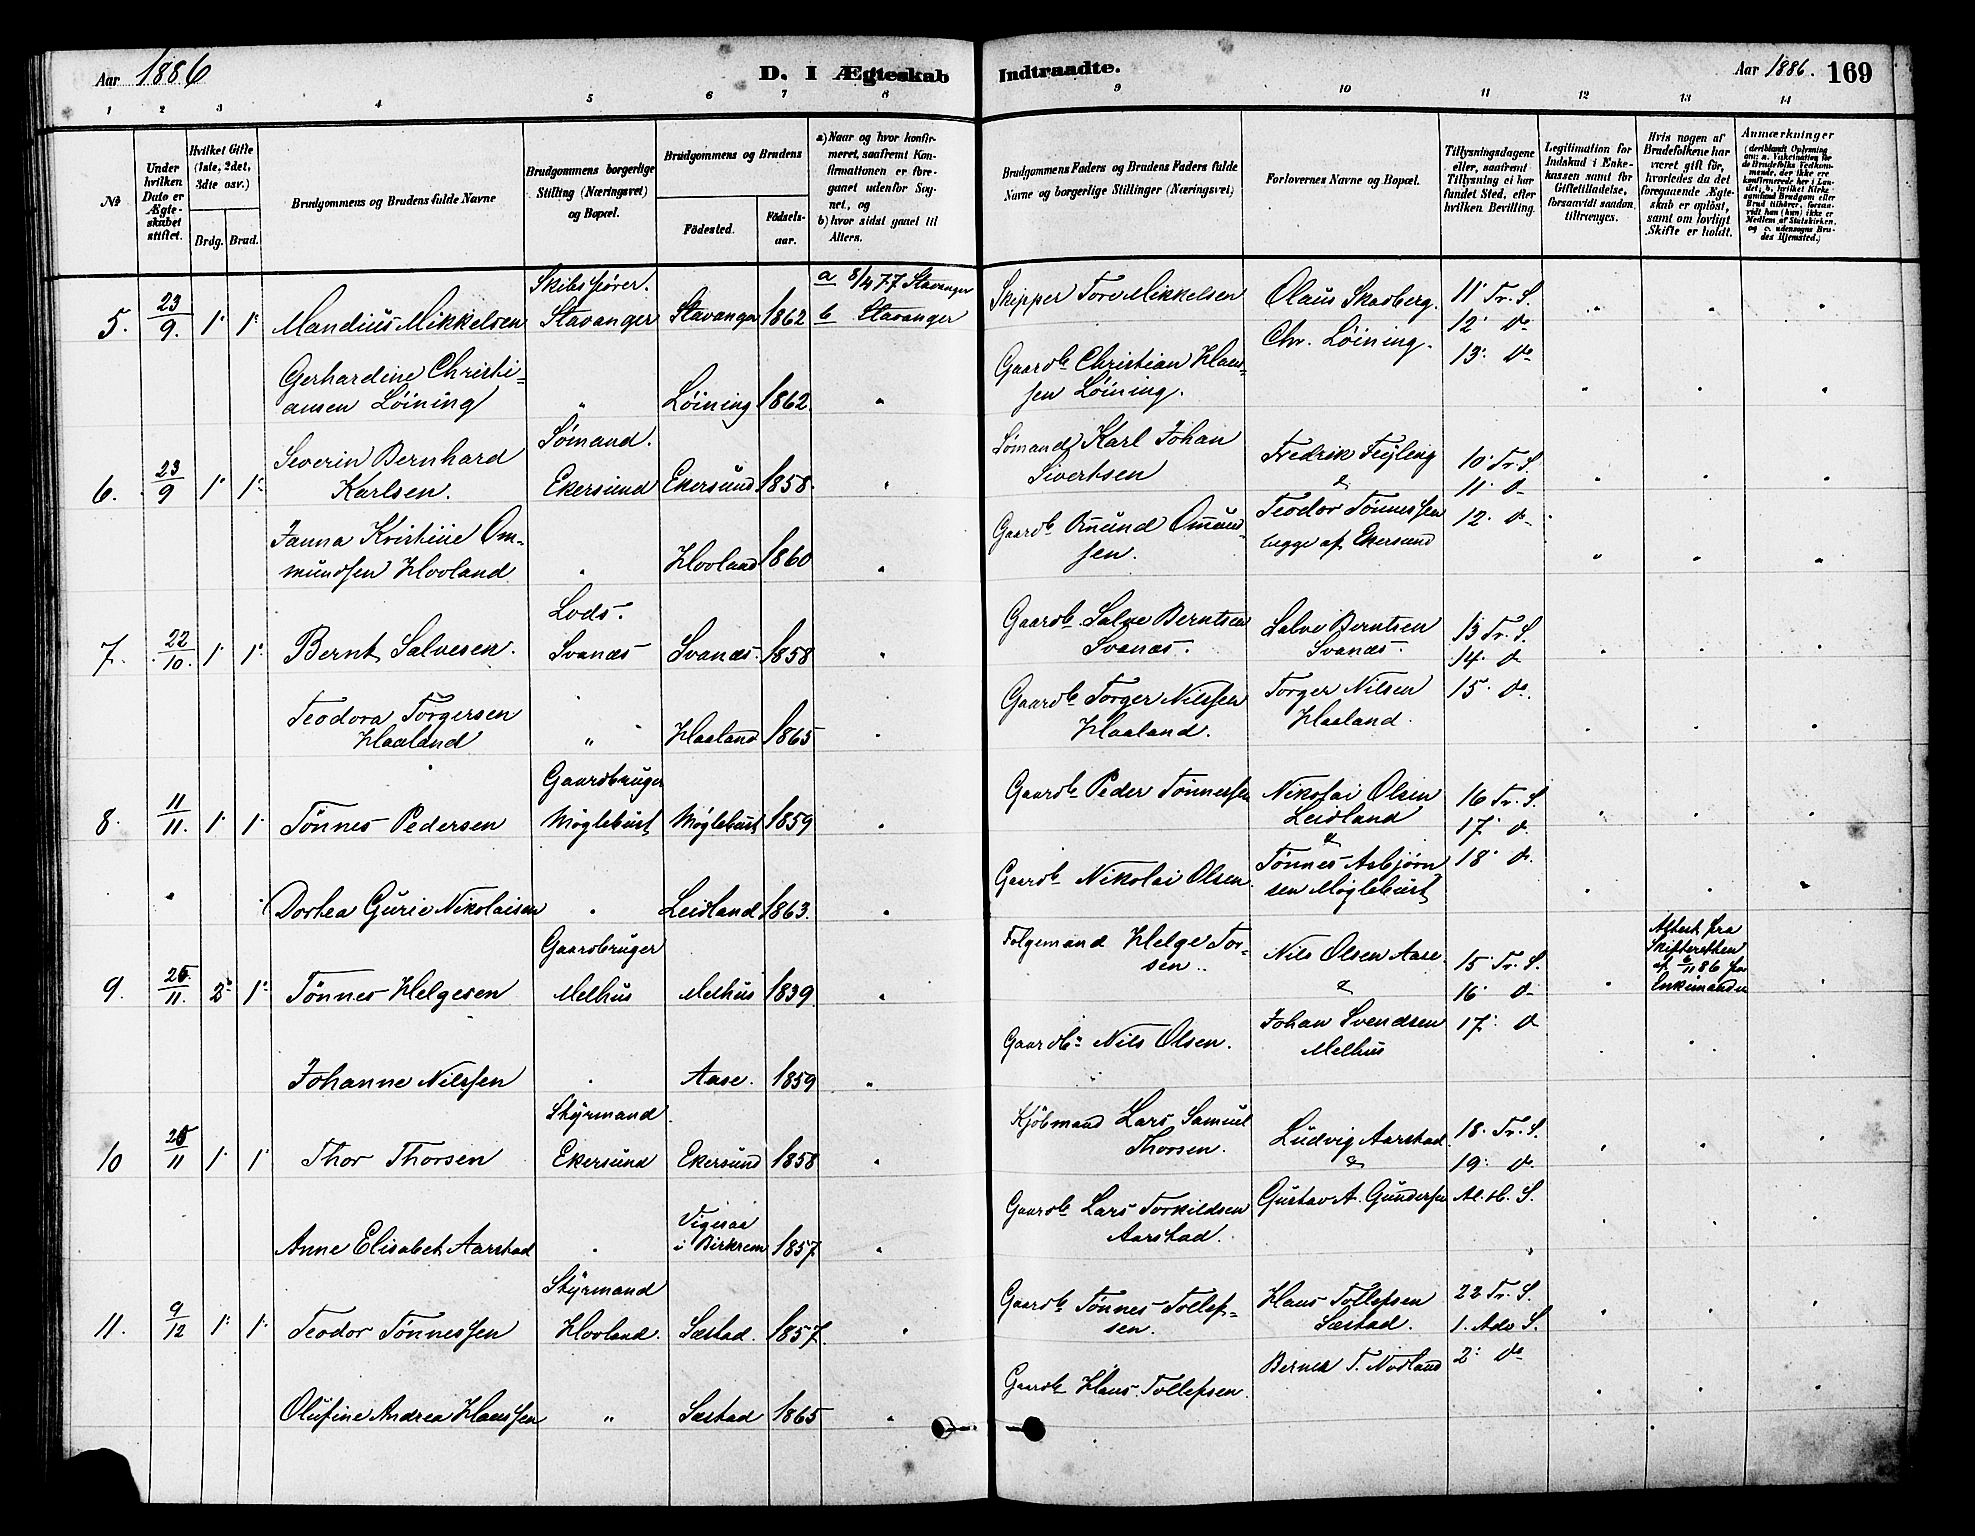 Aar 1886
D. I Ægteskab
Indtraadte.
Aar 1886.
169
1 2 3 4 5 6 7 8 9 10 11 12 13 14
№
Under hvilken Dato er Ægteskabet stiftet.
Hvilket Gifte (1ste, 2det, 3die osv.)
Brdg. Brud.
Brudgommens og Brudens fulde Navne
Brudgommens borgerlige Stilling (Næringsvei) og Bopæl.
Brudgommens og Brudens
Födested.
Födselsaar.
a) Naar og hvor konfirmeret, saafremt Konfirmationen er foregaaet udenfor Sognet, og
b) hvor sidst gaaet til Alters.
Brudgommens Faders og Brudens Faders fulde Navne og borgerlige Stillinger (Næringsvei)
Forlovernes Navne og Bopæl.
Tillysningsdagene eller, saafremt Tillysning ei har fundet Sted, efter hvilken Bevilling.
Legitimation for Indskud i Enkekassen samt for Giftetilladelse, forsaavidt saadan tiltrænges.
Hvis nogen af Brudefolkene har været gift för, hvorledes da det foregaaende Ægteskab er oplöst, samt om lovligt Skifte er holdt.
Anmærkninger
(deriblandt Oplysning om: a. Vakcination for de Brudefolks Vedkommende, der ikke ere konfirmerede her i Landet; b. hvilket Kirkesamfund Brudgom eller Brud tilhörer, forsaavidt han (hun) ikke er Medlem af Statskirken, og c. udensogns Brudes Hjemsted.)
Skibsfører.
5. 23/9. 1. 1. Mandius Mikkelsen Stavanger Stavanger 1862 a 8/4 77 Stavanger
b Stavanger
Skipper Tore Mikkelsen
Olaus Skadberg.
Chr. Löining.
11' Tr. S.
12' do
13' do
Gerhardine Christi=
ansen Löining " Löining 1862 "
Gaardb Christian Hansen
Löining.
Sömand.
6. 23/9 1. 1. Severin Bernhard
Karlsen. Ekersund Ekersund 1858. "
Sömand Karl Johan
Sivertsen
Fredrik Feyling
&
Teodor Tönnessen
begge af Ekersund
10' Tr. S.
11' do
12' do
Janna Kristine Om=
mundsen Hovland " Hovland 1860 "
Gaardb Omund Omund
sen.
Lods.
7. 22/10. 1. 1. Bernt Salvesen. Svanæs Svanæs. 1858 "
Gaardb Salve Berntsen
Svanæs.
Salve Berntsen
Svanæs.
13 Tr. S.
14. do
15. do
Teodora Torgersen
Haaland " Haaland 1865 "
Gaardb Torger Nilssen
Haaland.
Torger Nilsen
Haaland.
Gaardbruger
8. 11/11. 1. 1. Tönnes Pedersen Möglebust Möglebust 1859 "
Gaardb Peder Tönnessen
Nikolai Olsen
Leidland
&
Tönnes Asbjörn
sen Möglebust
16 Tr. S.
17' do
18' do
Dortea Gurie Nikolaisen " Leidland 1863. "
Gaardb Nikolai Olsen
Gaardbruger
9. 25/11. 2. 1. Tönnes Helgesen Melhus Melhus 1839. "
Folgemand Helge Tor-
sen.
Nils Olsen Aase
&
Johan Svendsen
Melhus
15' Tr. S.
16' do
17' do
Attest fra
Skifteretten
af 6/11 86 for
Enkemanden
Johanne Nilssen " Aase. 1859 "
Gaardb: Nils Olsen.
Styrmand
10 25/11 1. 1. Thor Thorsen Ekersund Ekersund 1858 "
Kjöbmand Lars Samuel
Thorsen.
Ludvig Aarstad
&
Gustav A. Gundersen
18. Tr. S.
19. do
Al. H. S.
Anne Elisabet Aarstad " Vigesaa
i Birkrem 1857. "
Gaardb Lars Torkildsen
Aarstad.
Styrmand
11. 9/12 1. 1. Teodor Tönnessen Hovland. Sæstad. 1857. "
Gaardb Tönnes Tollef-
sen.
Hans Tollefsen
Sæstad.
Bernes T. Nodland
22 Tr. S.
1. Adv S.
2. do
Olufine Andrea Hanssen " Sæstad 1865 "
Gaardb Hans Tollefsen.